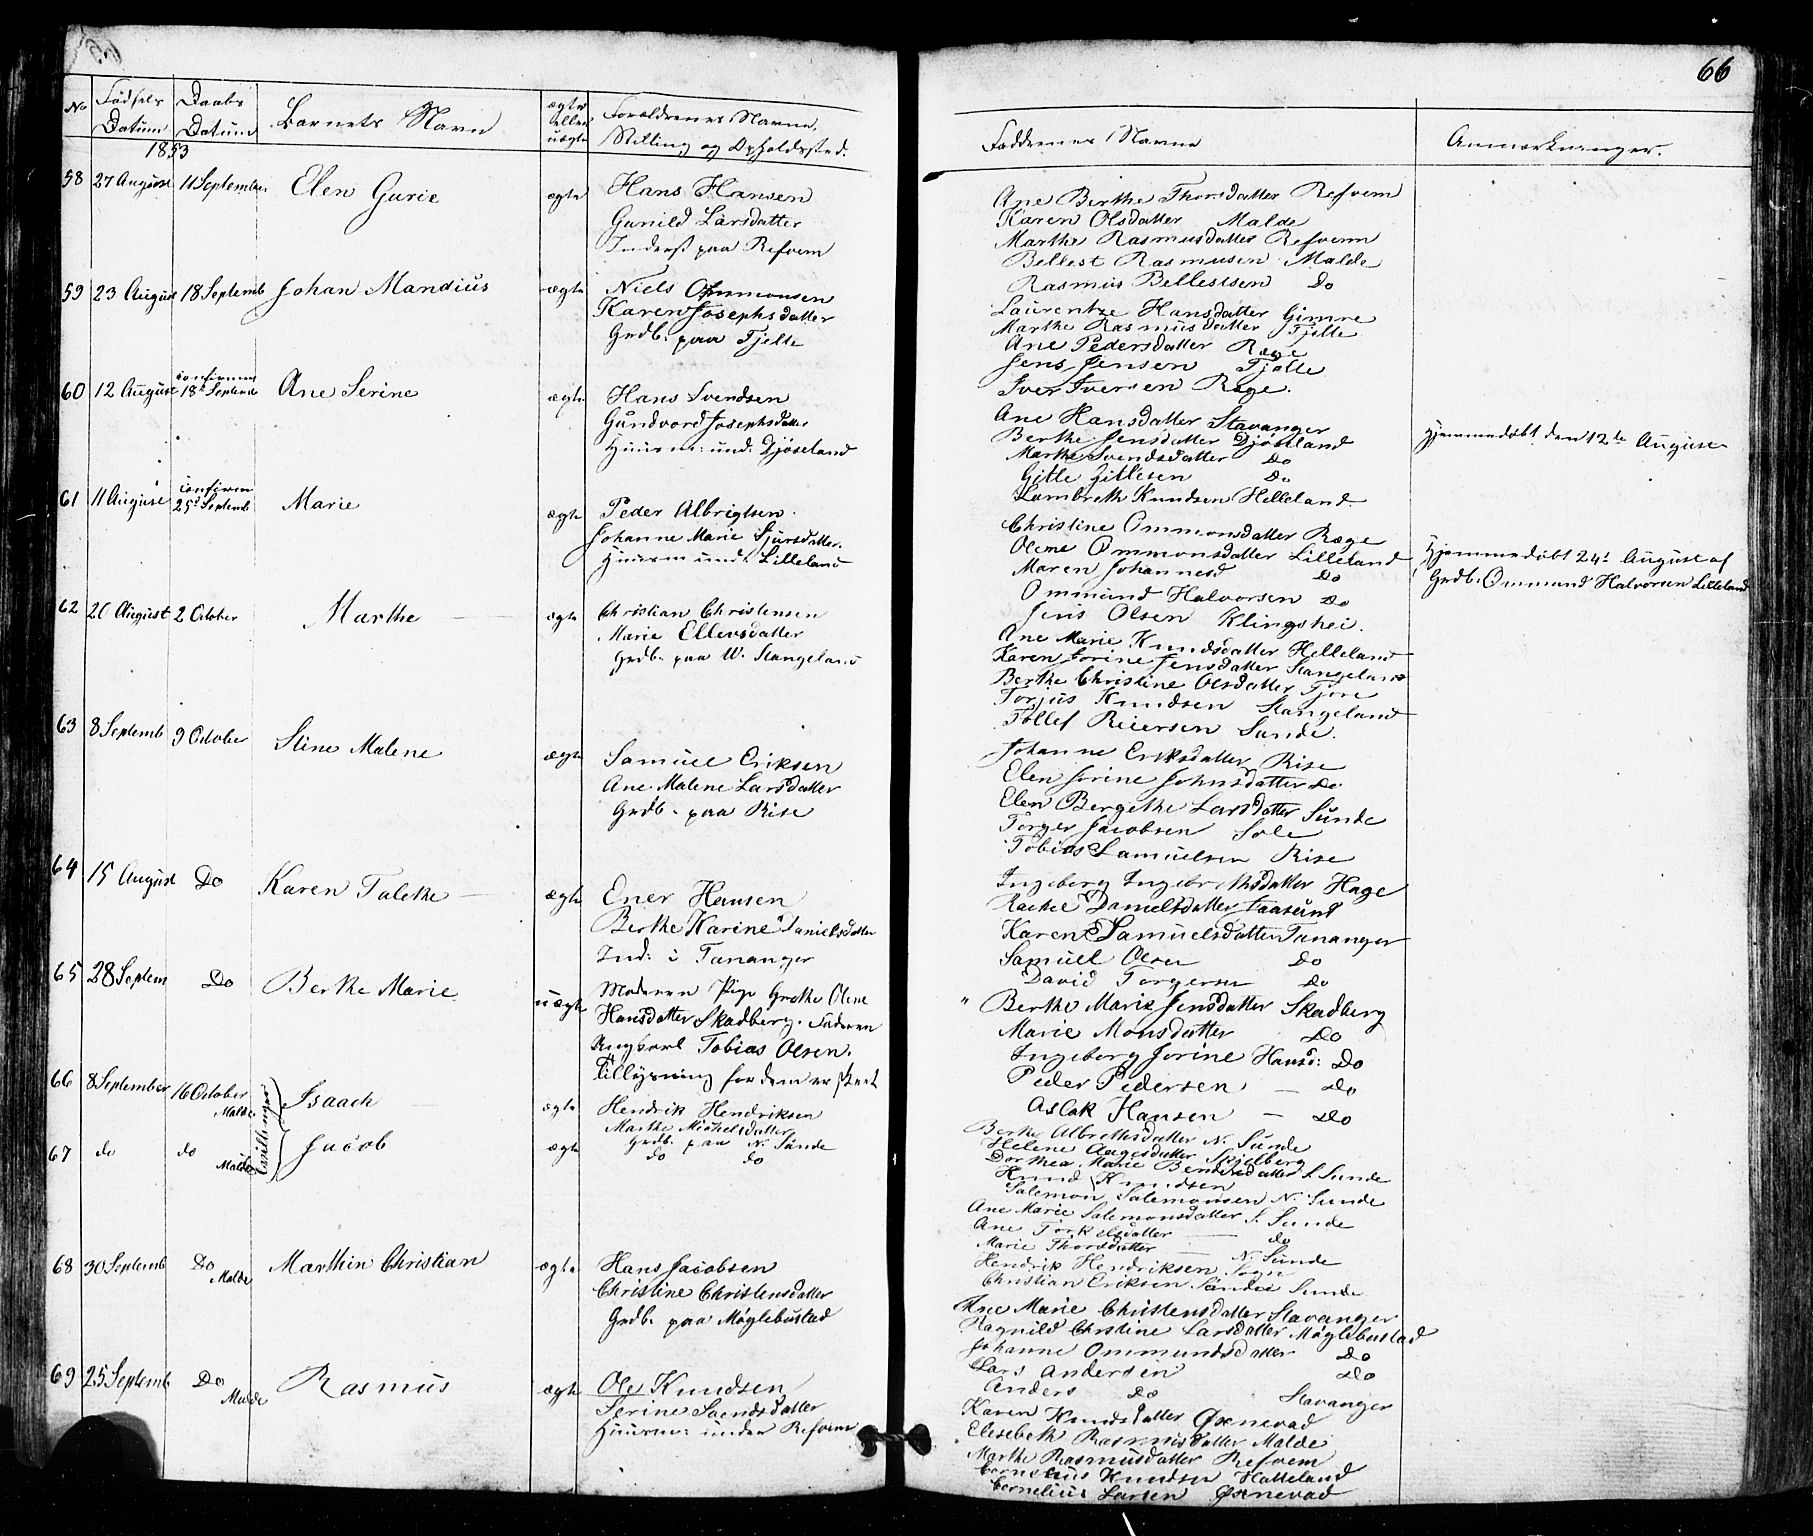 66
No
Fødsels
Datum
Daabs
Datum
Barnets Navn
ægte
eller
uægte
Forældrenes Navne,
Stilling og Opholdssted.
Faddrenes Navne
Anmærkninger.
1853
58 27 August 11 September Elen Gurie ægte
Hans Hansen
Gunild Larsdatter
Inderst paa Refvem
Ane Berthe Thorsdatter Refvem
Karen Olsdatter Malde
Marthe Rasmusdatter Refvem
Bellest Rasmusen Malde
Rasmus Bellestsen Do
59 23 August 18 Septemb Johan Mandius ægte
Niels Ommonsen
Karen Josephsdatter
Grdb. paa Tjelte
Laurentze Hansdatter Gimre
Marthe Rasmusdatter Tjelte
Ane Pedersdatter Ræge
Jens Jensen Tjelte
Iver Iversen Ræge.
60 12 August confirm 18de Septemb Ane Serine ægte
Hans Svendsen
Gundvord Josephsdatter
Huusm: und: Djøseland
Ane Hansdatter Stavanger
Berthe Jensdatter Djøseland
Marthe Svendsdatter Do
Gitle Gitlesen Do
Lambreth Knudsen Helleland.
Hjemmedøbt den 12te August
61 11 August confirm 25d Septemb Marie ægte
Peder Albrigtsen.
Johanne Marie Sjursdatter.
Huusm und: Lilleland
Christine Ommonsdatter Ræge
Olene Ommonsdatter Lilleland
Maren Johannesd Do
Ommund Halvorsen Do
Jens Olsen Klingshei.
Hjemmedøbt 24d August af
Grdb. Ommund Halvorsen Lilleland
62 20 August 2 October Marthe ægte
Christian Christensen
Marie Ellevsdatter
Grdb. paa W. Stangeland
Ane Marie Knudsdatter Helleland
Karen Jorine Jensdatter Stangeland
Berthe Christine Olsdatter Tjore
Torjus Knudsen Stangeland
Tollef Reiersen Sunde.
63 8 Septemb 9 October Stine Malene ægte
Samuel Eriksen
Ane Malene Larsdatter
Grdb. paa Rise
Johanne Eriksdatter Rise
Elen Jorine Johnsdatter Do
Elen Bergethe Larsdatter Sunde
Torger Jacobsen Sole
Tobias Samuelsen Rise
64 15 August Do Karen Talethe ægte
Ener Hansen
Berthe Karine Danielsdatter
Ind: i Tananger
Ingeborg Ingebrethsdatter Hage
Rachel Danielsdatter
Karen Samuelsdatter Tananger
Samuel Olsen Do
David Torgersen Do
65 28 Septem Do Berthe Marie uægte
Moderen Pige Grethe Olene
Hansdatter Skadberg. Faderen
Ungkarl Tobias Olsen.
Tillysning for dem er skeet
" Berthe Marie Jensdatter Skadberg
Marie Monsdatter Do
Ingeborg Jorine Hansd: Do
Peder Pedersen — Do
Aslak Hansen — Do
66 8 September 16 October Malde Isaach ægte
Tvillinger
Hendrik Hendriksen
Marthe Michelsdatter
Grdb. paa N. Sunde
Berthe Albrethsdatter N. Sunde
Helene Aagesdatter Skjelberg
Dorthea Marie Bendixdatter S. Sunde
Knud Knudsen
Salemon Salemonsen N. Sunde
67 do do Malde Jacob ægte
do do
Ane Marie Salemonsdatter S. Sunde
Ane Torkelsdatter do
Marie Thorsdatter — N. Sunde
Hendrik Hendriksen Sogn
Christian Eriksen Søndre Sunde
68 30 Septemb Do Malde Marthin Christian ægte
Hans Jacobsen
Christine Christensdatter
Grdb. paa Møglebustad
Ane Marie Christensdatter Stavanger
Ragnild Christine Larsdatter Møglebustad
Johanne Ommundsdatter Do
Lars Andersen Do
Anders Do Stavanger
69 25 Septemb Do Malde Rasmus ægte
Ole Knudsen
Serine Svendsdatter
Huusm: under Refvem
Karen Knudsdatter Øxnevad
Elisebeth Rasmusdatter Malde
Marthe Rasmusdatter Refvem
Cornelius Knudsen Hatteland
Cornelius Larsen Øxnevad